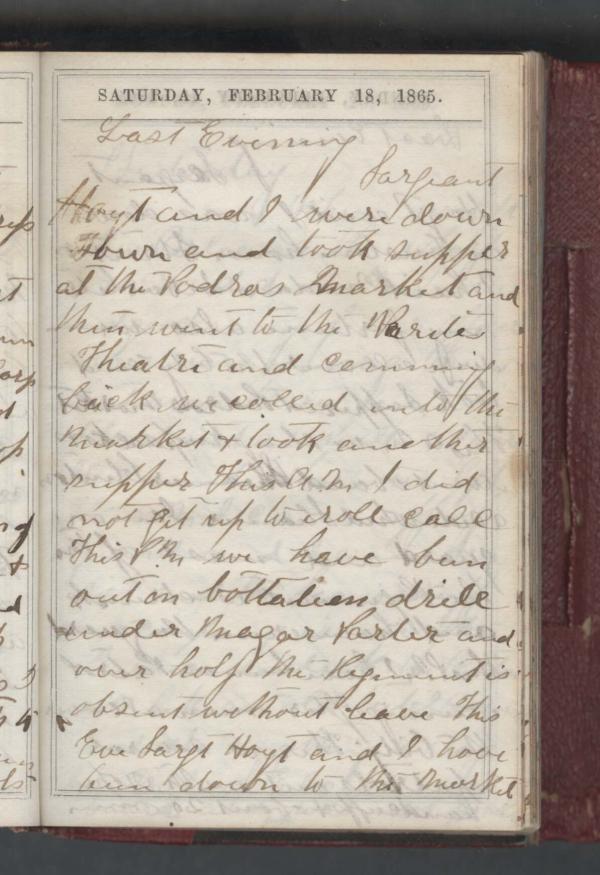 SATURDAY, FEBRUARY 18, 1865.
Last Evening
Sargeant
Hoyt and I were down
Town and took supper
at the Podras Market and
then went to the Varites
Theatre and comming
back we colled into the
Market & took another
supper This A.M. I did
not get up to roll call
This P.M. we have bun
out on battalien drill
under Magar Porter and
over half the Regiment is
absent without leave This
Eve Sargt Hoyt and I have
bun down to the Market